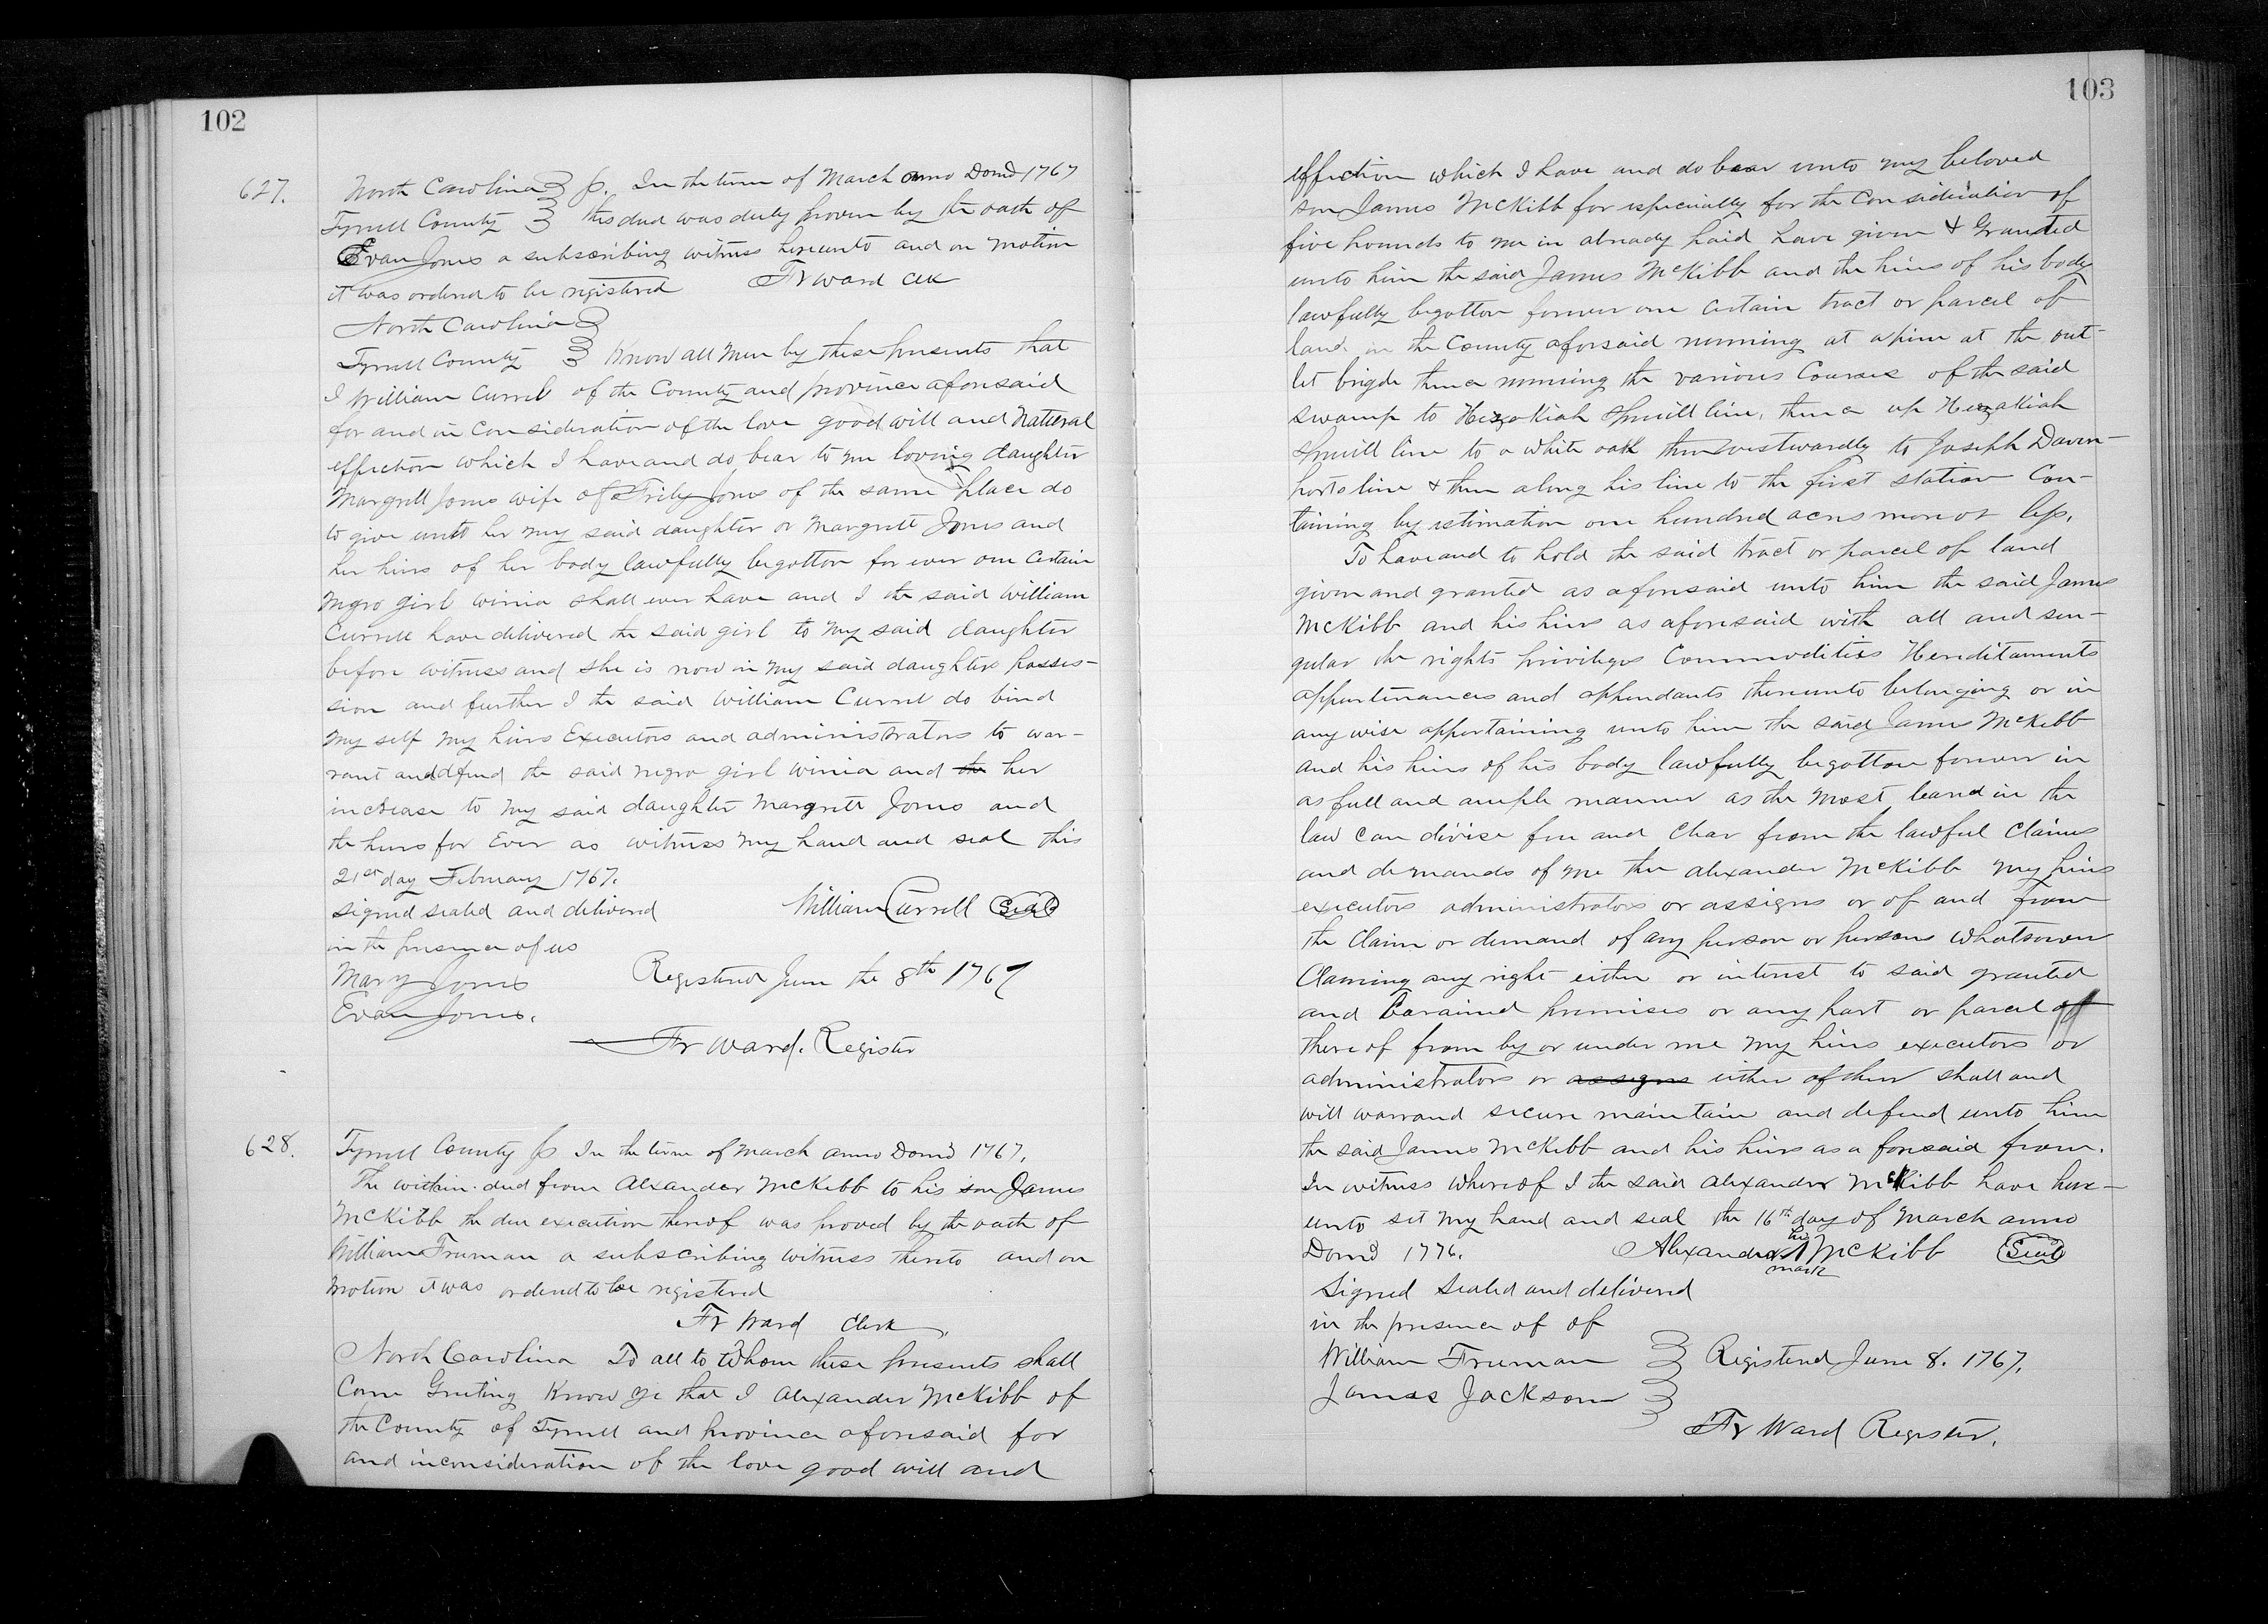 102
627. North Carolina } ss. In the term of March anno Domd 1767
Tyrrell County } this deed was duly proven by the oath of
Evan Jones a subscribing witness hereunto and on motion
it was ordered to be registered Fr Ward Clk
North Carolina }
Tyrrell County } Know all men by these presents that
I William Currel of the County and province aforesaid
for and in consideration of the love good will and natteral
effection which I have and do bear to me loving daughter
Margrett Jones wife of Jones of the same place do
to give unto her my said daughter or Margrett Jones and
her heirs of her body lawfully begotton for ever one certain
negro girl winia shall ever have and I the said William
Currell have delivered the said girl to my said daughter
before witness and she is now in my said daughters posses-
sion and further I the said William Currel do bind
my self my heirs Executors and administrators to war-
rant and defend the said negro girl winia and the her
increase to my said daughter Margrett Jones and
the heirs for Ever as witness my hand and seal this
21st day February 1767.
signed sealed and delivered William Currell Seal
in the presence of us
Mary Jones Registered June the 8th 1767
Evan Jones.
Fr Ward. Register
628. Tyrrell County ss In the term of March anno Domd 1767.
The within deed from Alexander McKibb to his son James
McKibb the due execution thereof was proved by the oath of
William Truman a subscribing witness thereto and on
motion it was orderd to be registered
Fr Ward Clerk.
North Carolina To all to whom these presents shall
Come Greeting Know ye that I Alexander McKibb of
the County of Tyrrell and province aforesaid for
and in consideration of the love good will and
103
effection which I have and do bear unto my beloved
son James McKibb for especially for the Consideration of
five pounds to me in already paid have given & Granted
unto him the said James McKibb and the heirs of his body
lawfully begotton forever one certain tract or parcel of
land in the County aforsaid running at a pine at the out-
let brigde thence running the various Courses of the said
swamp to Hezakiah Spruill line, thence up Hezakiah
Spruill line to a white oak then westwardly to Joseph Daven-
ports line & then along his line to the first station Con-
taining by estimation one hundred acres more or less.
To have and to hold the said tract or parcel of land
given and granted as aforesaid unto him the said James
McKibb and his heirs as aforesaid with all and sin-
gular the rights privileges Commodities Hereditaments
appurtenances and appendants thereunto belonging or in
any wise appertaining unto him the said James McKibb
and his heirs of his body lawfully begotton forever in
as full and ample manner as the most leand in the
law can divise free and clear from the lawful claims
and demands of me the Alexander McKibb my heirs
executors administrators or assigns or of and from
the claim or demand of any person or persons whatsoever
Claiming any right either or interest to said granted
and Barained premises or any part or parcel off
there of from by or under me my heirs executors or
administrators or assigns either of them shall and
will warrand secure maintain and defend unto him
the said James McKibb and his heirs as a foresaid from.
In witness whereof I the said Alexander McKibb have here-
unto set my hand and seal the 16th day of March anno
Domd 1776. Alexander his mark McKibb Seal
Signed Sealed and delivered
in the presence of of
William Truman } Registered June 8. 1767.
James Jackson }
Fr Ward Register.